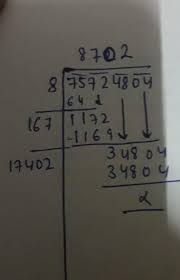 8702
8 75724804
64
167 1172
-1169
17402 34804
34804